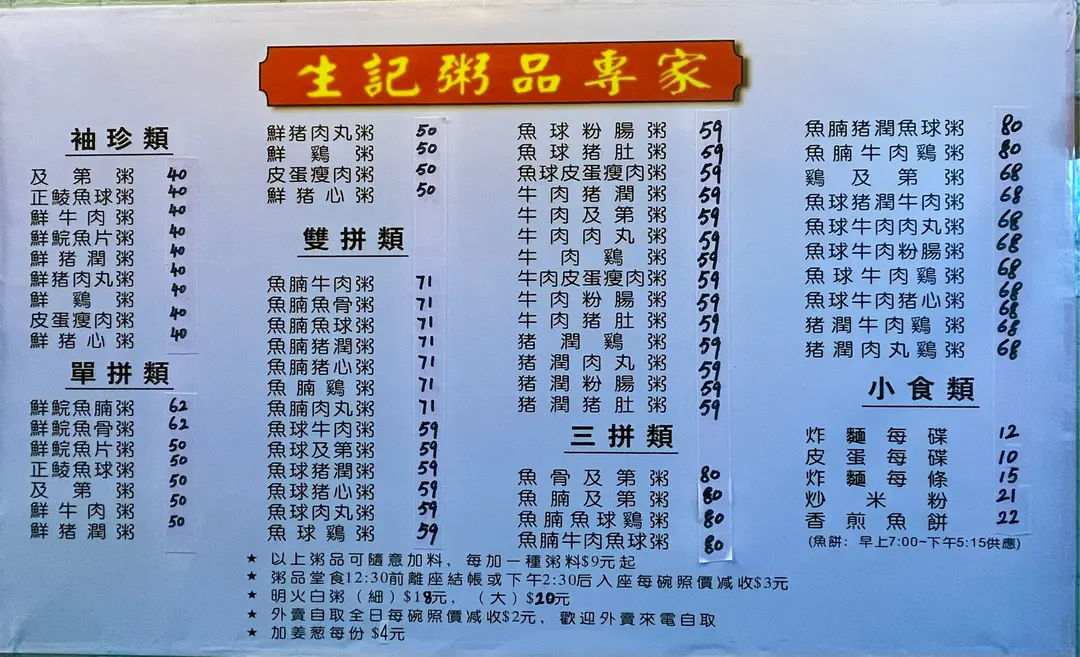 生記粥品專家
袖珍類
及第粥 40
正鯪魚球粥 40
鮮牛肉粥 40
鮮鯇魚片粥 40
鮮猪潤粥 40
鮮猪肉丸粥 40
鮮鷄粥 40
皮蛋瘦肉粥 40
鮮猪心粥 40
單拼類
鮮鯇魚腩粥 62
鮮鯇魚骨粥 62
鮮鯇魚片粥 50
正鯪魚球粥 50
及第粥 50
鮮牛肉粥 50
鮮猪潤粥 50
鮮猪肉丸粥 50
鮮鷄粥 50
皮蛋瘦肉粥 50
鮮猪心粥 50
雙拼類
魚腩牛肉粥 71
魚腩魚骨粥 71
魚腩魚球粥 71
魚腩猪潤粥 71
魚腩猪心粥 71
魚腩鷄粥 71
魚腩肉丸粥 71
魚球牛肉粥 59
魚球及第粥 59
魚球猪潤粥 59
魚球猪心粥 59
魚球肉丸粥 59
魚球鷄粥 59
魚球粉腸粥 59
魚球猪肚粥 59
魚球皮蛋瘦肉粥 59
牛肉猪潤粥 59
牛肉及第粥 59
牛肉肉丸粥 59
牛肉鷄粥 59
牛肉皮蛋瘦肉粥 59
牛肉粉腸粥 59
牛肉猪肚粥 59
猪潤鷄粥 59
猪潤肉丸粥 59
猪潤粉腸粥 59
猪潤猪肚粥 59
三拼類
魚骨及第粥 80
魚腩及第粥 80
魚腩魚球鷄粥 80
魚腩牛肉魚球粥 80
魚腩猪潤魚球粥 80
魚腩牛肉鷄粥 80
鷄及第粥 68
魚球猪潤牛肉粥 68
魚球牛肉肉丸粥 68
魚球牛肉粉腸粥 68
魚球牛肉鷄粥 68
魚球牛肉猪心粥 68
猪潤牛肉鷄粥 68
猪潤肉丸鷄粥 68
小食類
炸麵每碟 12
皮蛋每碟 10
炸麵每條 15
炒米粉 21
香煎魚餅 22
(魚餅：早上7:00~下午5:15供應)
★ 以上粥品可隨意加料，每加一種粥料$9元起
★ 粥品堂食12:30前離座結帳或下午2:30后入座每碗照價减收$3元
★ 明火白粥（細）$18元，（大）$20元
★ 外賣自取全日每碗照價减收$2元，歡迎外賣來電自取
★ 加姜葱每份 $4元